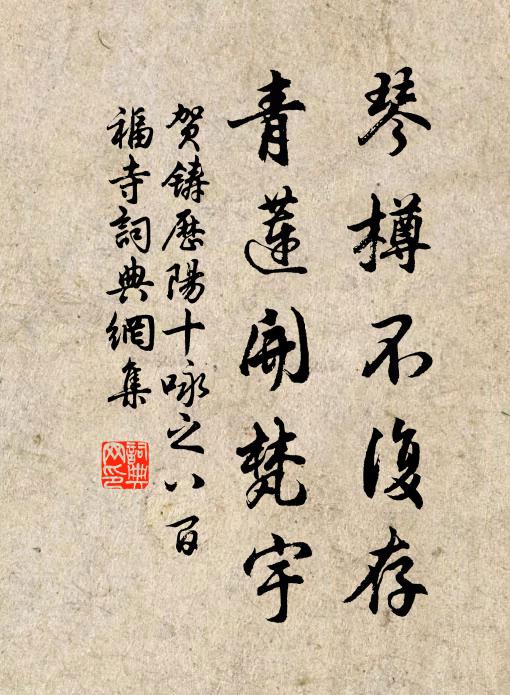 琴樽不復存
青蓮開梵宇
贺鑄歷陽十咏之八百
福寺詞典網集
詞典
网印